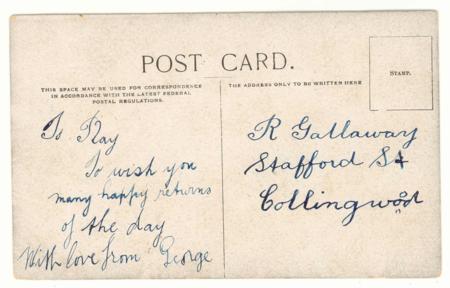 POST CARD.
THIS SPACE MAY BE USED FOR CORRESPONDENCE
IN ACCORDANCE WITH THE LATEST FEDERAL
POSTAL REGULATIONS.
THE ADDRESS ONLY TO BE WRITTEN HERE
STAMP.
To Ray
To wish you
many happy returns
of the day
With love from George
R Gallaway
Stafford St
Collingwood